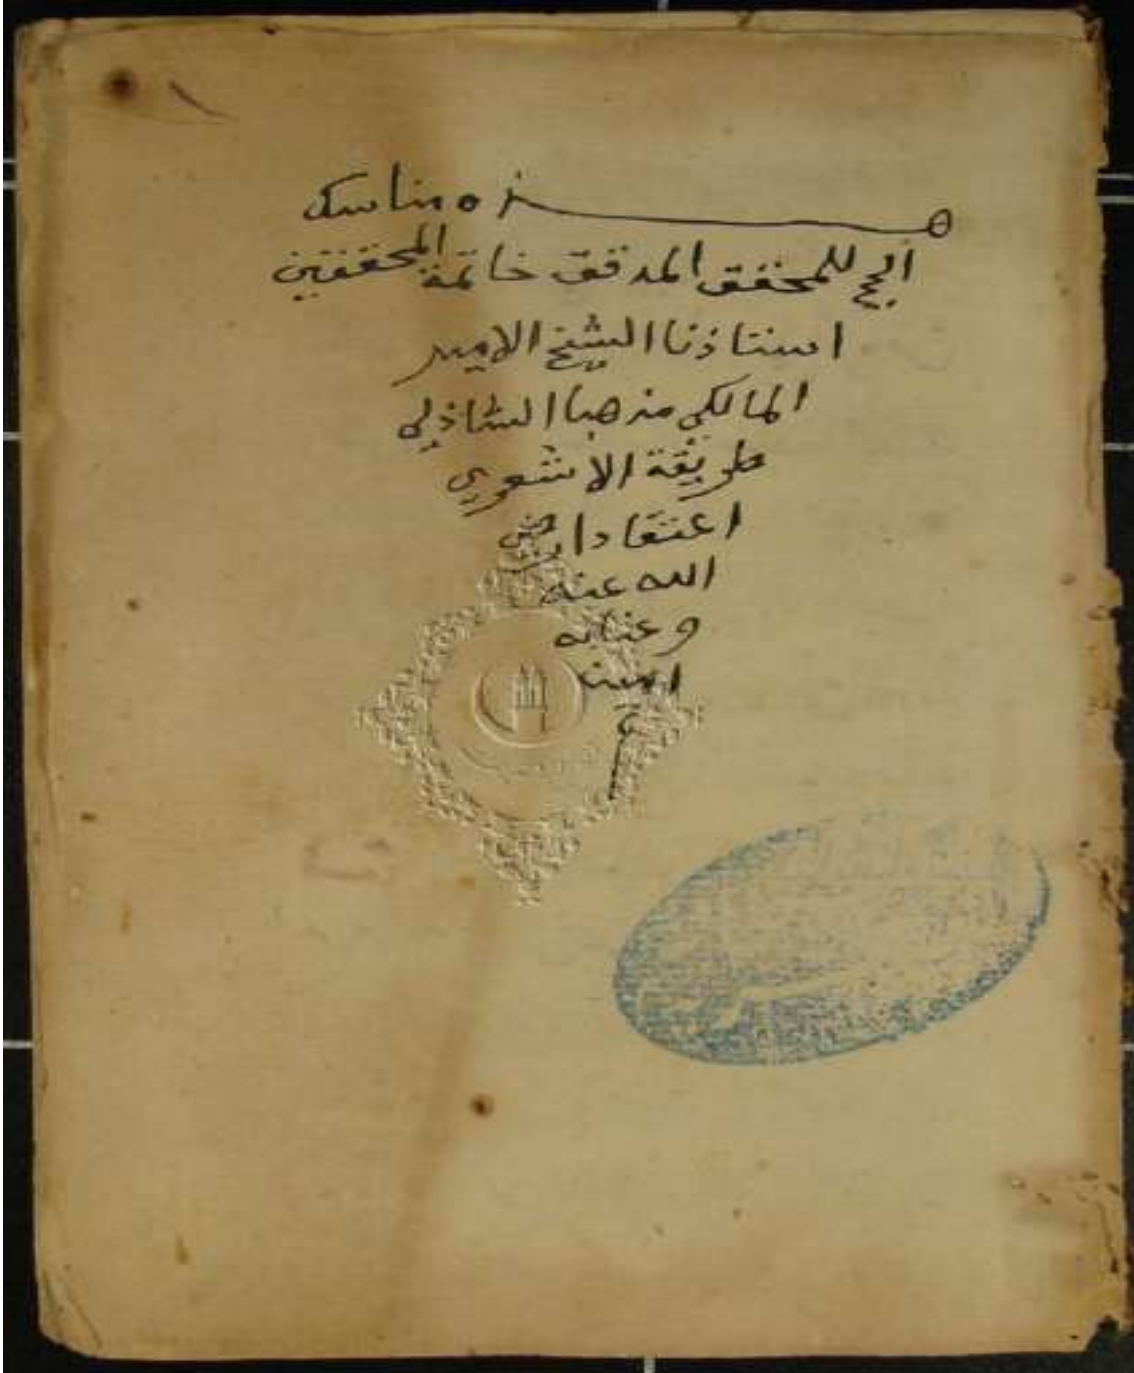 هذه مناسك
الحج للمحقق المدقق خاتمة المحققين
استاذنا الشيخ الامير
المالكي مذهبا الشاذلي
طريقة الاشعري
اعتقادا رضي
الله عنه
وعنا به
امين
م